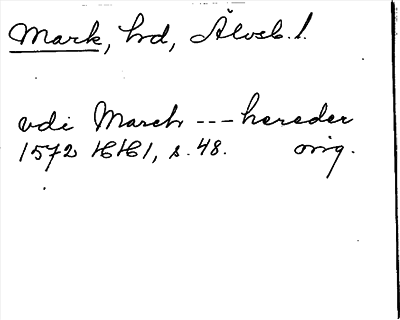 Mark, hd, Älvsb. l.
udi March --- hereder
1572 HH1, s. 48. orig.